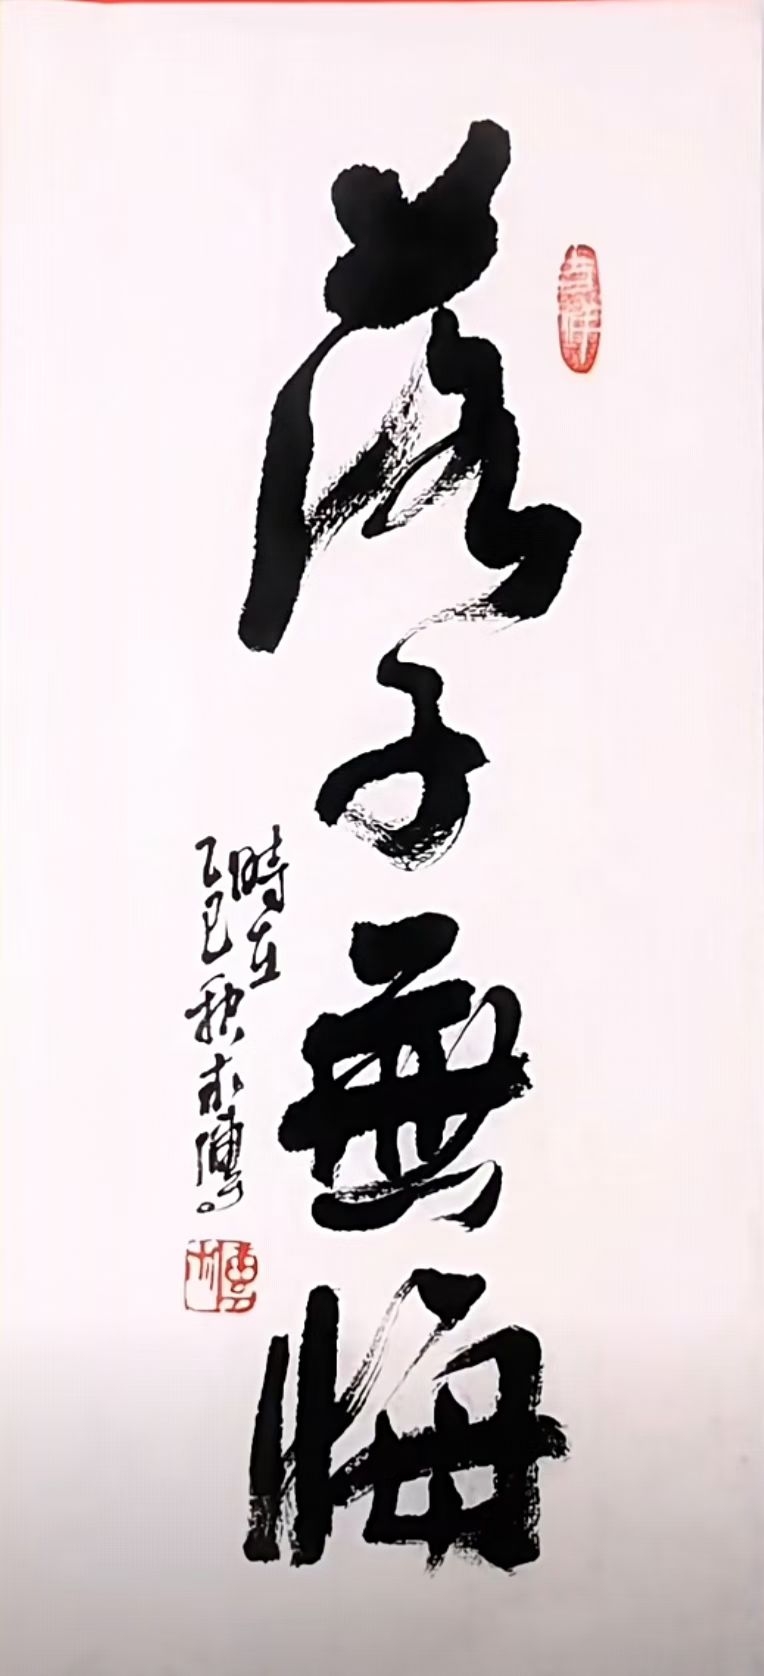 落子無悔
時在
乙巳秋
吉祥